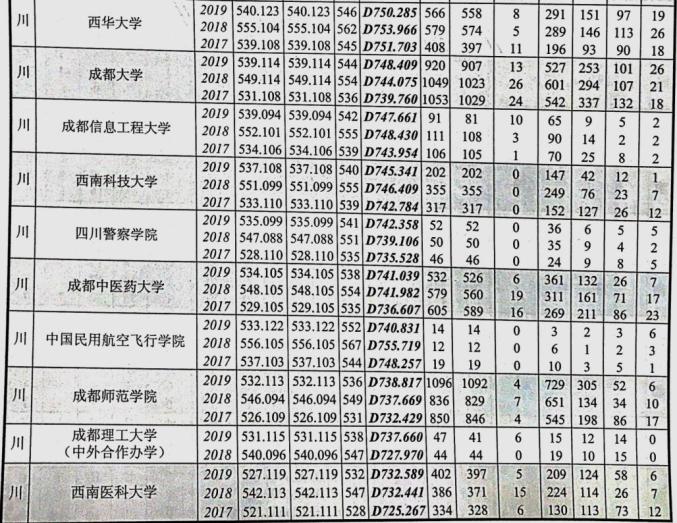 川 西华大学 2019 540.123 540.123 546 D750.285 566 558 8 291 151 97 19
2018 555.104 555.104 562 D753.966 579 574 5 289 146 113 26
2017 539.108 539.108 545 D751.703 408 397 11 196 93 90 18
川 成都大学 2019 539.114 539.114 544 D748.409 920 907 13 527 253 101 26
2018 549.114 549.114 554 D744.075 1049 1023 26 601 294 107 21
2017 531.108 531.108 536 D739.760 1053 1029 24 542 337 132 18
川 成都信息工程大学 2019 539.094 539.094 542 D747.661 91 81 10 65 9 5 2
2018 552.101 552.101 555 D748.430 111 108 3 90 14 2 2
2017 534.106 534.106 539 D743.954 106 105 1 70 25 8 2
川 西南科技大学 2019 537.108 537.108 540 D745.341 202 202 0 147 42 12 1
2018 551.099 551.099 555 D746.409 355 355 0 249 76 23 7
2017 533.110 533.110 539 D742.784 317 317 0 152 127 26 12
川 四川警察学院 2019 535.099 535.099 541 D742.358 52 52 0 36 6 5 5
2018 547.088 547.088 551 D739.106 50 50 0 35 9 4 2
2017 528.110 528.110 535 D735.528 46 46 0 24 9 8 5
川 成都中医药大学 2019 534.105 534.105 538 D741.039 532 526 6 361 132 26 7
2018 548.105 548.105 554 D741.982 579 560 19 311 161 71 17
2017 529.105 529.105 535 D736.607 605 589 16 269 211 86 23
川 中国民用航空飞行学院 2019 533.122 533.122 552 D740.831 14 14 0 3 2 3 6
2018 556.105 556.105 567 D755.719 12 12 0 6 1 2 3
2017 537.103 537.103 544 D748.257 19 19 0 10 3 5 1
川 成都师范学院 2019 532.113 532.113 536 D738.817 1096 1092 4 729 305 52 6
2018 546.094 546.094 549 D737.669 836 829 7 651 134 34 10
2017 526.109 526.109 531 D732.429 850 846 4 545 198 86 17
川 成都理工大学 2019 531.115 531.115 538 D737.660 47 41 6 15 12 14 0
(中外合作办学) 2018 540.096 540.096 547 D727.970 44 44 0 19 10 15 0
川 西南医科大学 2019 527.119 527.119 532 D732.589 402 397 5 209 124 58 6
2018 542.113 542.113 547 D732.441 386 371 15 224 114 26 7
2017 521.111 521.111 528 D725.267 334 328 6 130 113 73 12